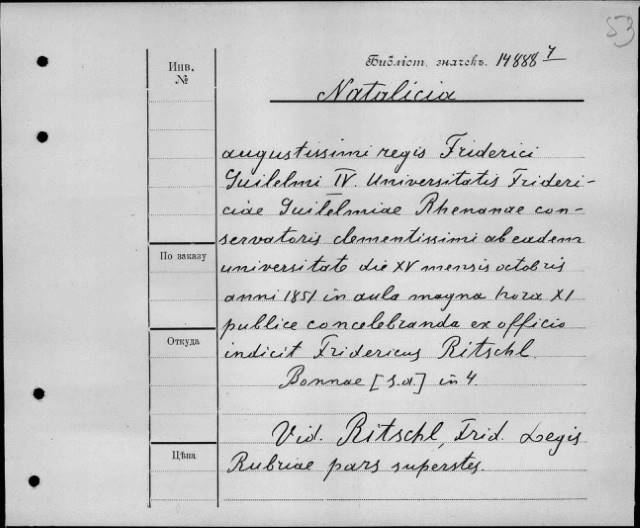 53
Инв.
№
Библіот. значекъ. 14888 7
Natalicia
augustissimi regis Friderici
Guilelmi IV. Universitatis Frideri-
ciae Guilelmiae Rhenanae con-
servatoris clementissimi ab eadem
По заказу
universitate die XV mensis octobris
anni 1851 in aula magna hora XI
publice concelebranda ex officio
Откуда
indicit Fridericus Ritschl.
Bonnae [s.a.] in 4.
Vid. Ritschl, Frid. Legis
Цѣна
Rubriae pars superstes.